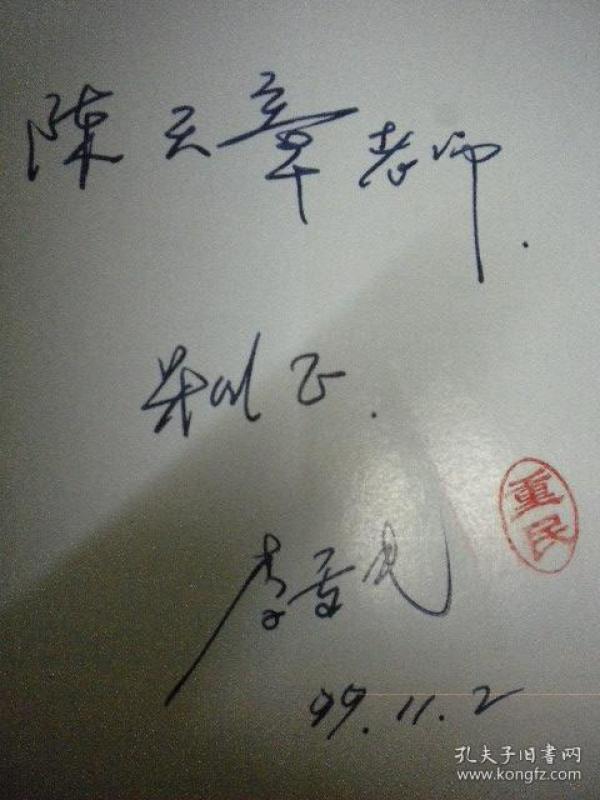 陈云章老师.
正.
重民
李重民
99.11.2
孔夫子旧书网
www.kongfz.com